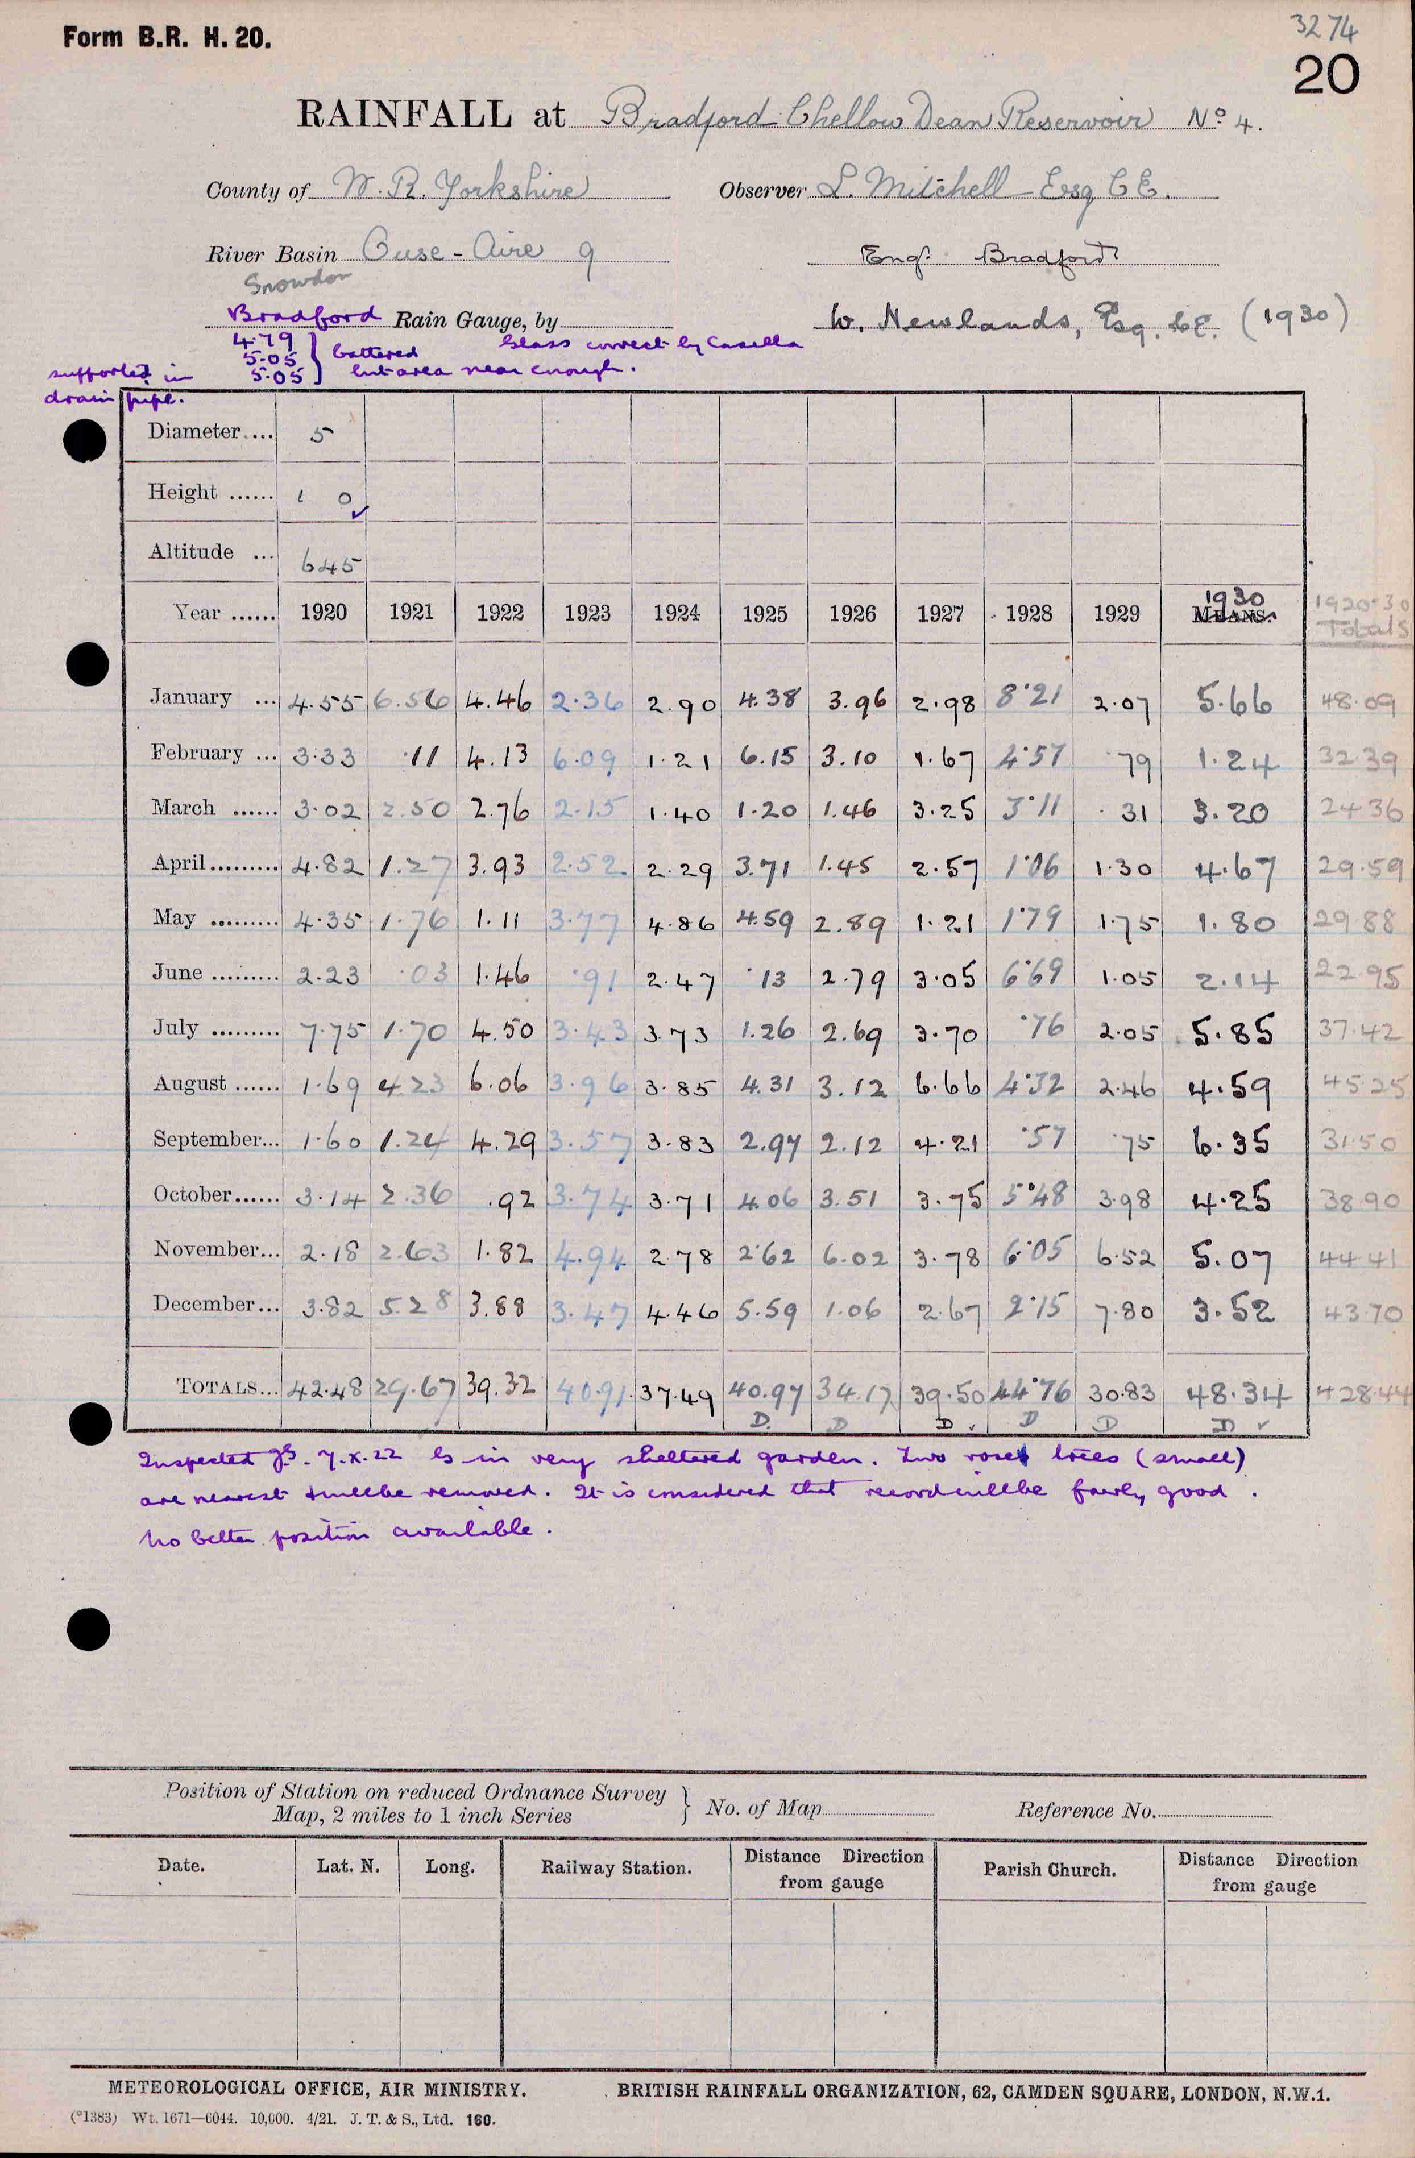 Form B.R. H. 20.
3274
20
RAINFALL at Bradford Chellow Dean Reservoir No 4.
County of W. R. Yorkshire Observer L. Mitchell Esq C E.
River Basin Ouse - Aire 9 Engr Bradford
Snowdon
Bradford Rain Gauge, by W. Newlands, Esq. C.E. (1930)
4.79
5.05 } battered Glass correct by Casella
5.05 but area near enough.
supported in
drain pipe.
Diameter.... 5
Height ...... 1 0
Altitude ... 645
Year ...... 1920 1921 1922 1923 1924 1925 1926 1927 1928 1929 1930 MEANS. 1920-30 Totals
January ... 4.55 6.56 4.46 2.36 2.90 4.38 3.96 2.98 8.21 2.07 5.66 48.09
February ... 3.33 .11 4.13 6.09 1.21 6.15 3.10 1.67 4.57 .79 1.24 32.39
March ...... 3.02 2.50 2.76 2.15 1.40 1.20 1.46 3.25 3.11 .31 3.20 24.36
April......... 4.82 1.27 3.93 2.52 2.29 3.71 1.45 2.57 1.06 1.30 4.67 29.59
May ......... 4.35 1.76 1.11 3.77 4.86 4.59 2.89 1.21 1.79 1.75 1.80 29.88
June ......... 2.23 .03 1.46 .91 2.47 .13 2.79 3.05 6.69 1.05 2.14 22.95
July ......... 7.75 1.70 4.50 3.43 3.73 1.26 2.69 3.70 .76 2.05 5.85 37.42
August ...... 1.69 4.23 6.06 3.96 3.85 4.31 3.12 6.66 4.32 2.46 4.59 45.25
September... 1.60 1.24 4.29 3.57 3.83 2.97 2.12 4.21 .57 .75 6.35 31.50
October...... 3.14 2.36 .92 3.74 3.71 4.06 3.51 3.75 5.48 3.98 4.25 38.90
November... 2.18 2.63 1.82 4.94 2.78 2.62 6.02 3.78 6.05 6.52 5.07 44.41
December... 3.82 5.28 3.88 3.47 4.46 5.59 1.06 2.67 2.15 7.80 3.52 43.70
TOTALS... 42.48 29.67 39.32 40.91 37.49 40.97 34.17 39.50 44.76 30.83 48.34 428.44
D. D D. D D D ✓
Inspected 7.X.22 Is in very sheltered garden. Two rose trees (small)
are nearest & will be removed. It is considered that record will be fairly good.
No better position available.
Position of Station on reduced Ordnance Survey
Map, 2 miles to 1 inch Series } No. of Map Reference No.
Date. Lat. N. Long. Railway Station. Distance Direction from gauge Parish Church. Distance Direction from gauge
METEOROLOGICAL OFFICE, AIR MINISTRY. BRITISH RAINFALL ORGANIZATION, 62, CAMDEN SQUARE, LONDON, N.W.1.
(*1383) Wt. 1671—6044. 10,000. 4/21. J. T. & S., Ltd. 160.